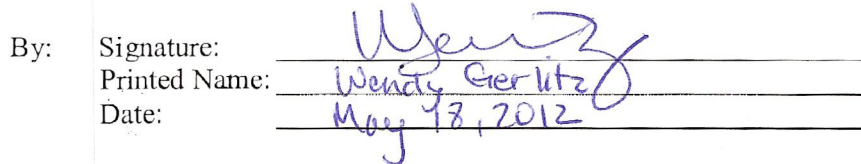 By: Signature:
Printed Name: Wendy Gerlitz
Date: May 18, 2012